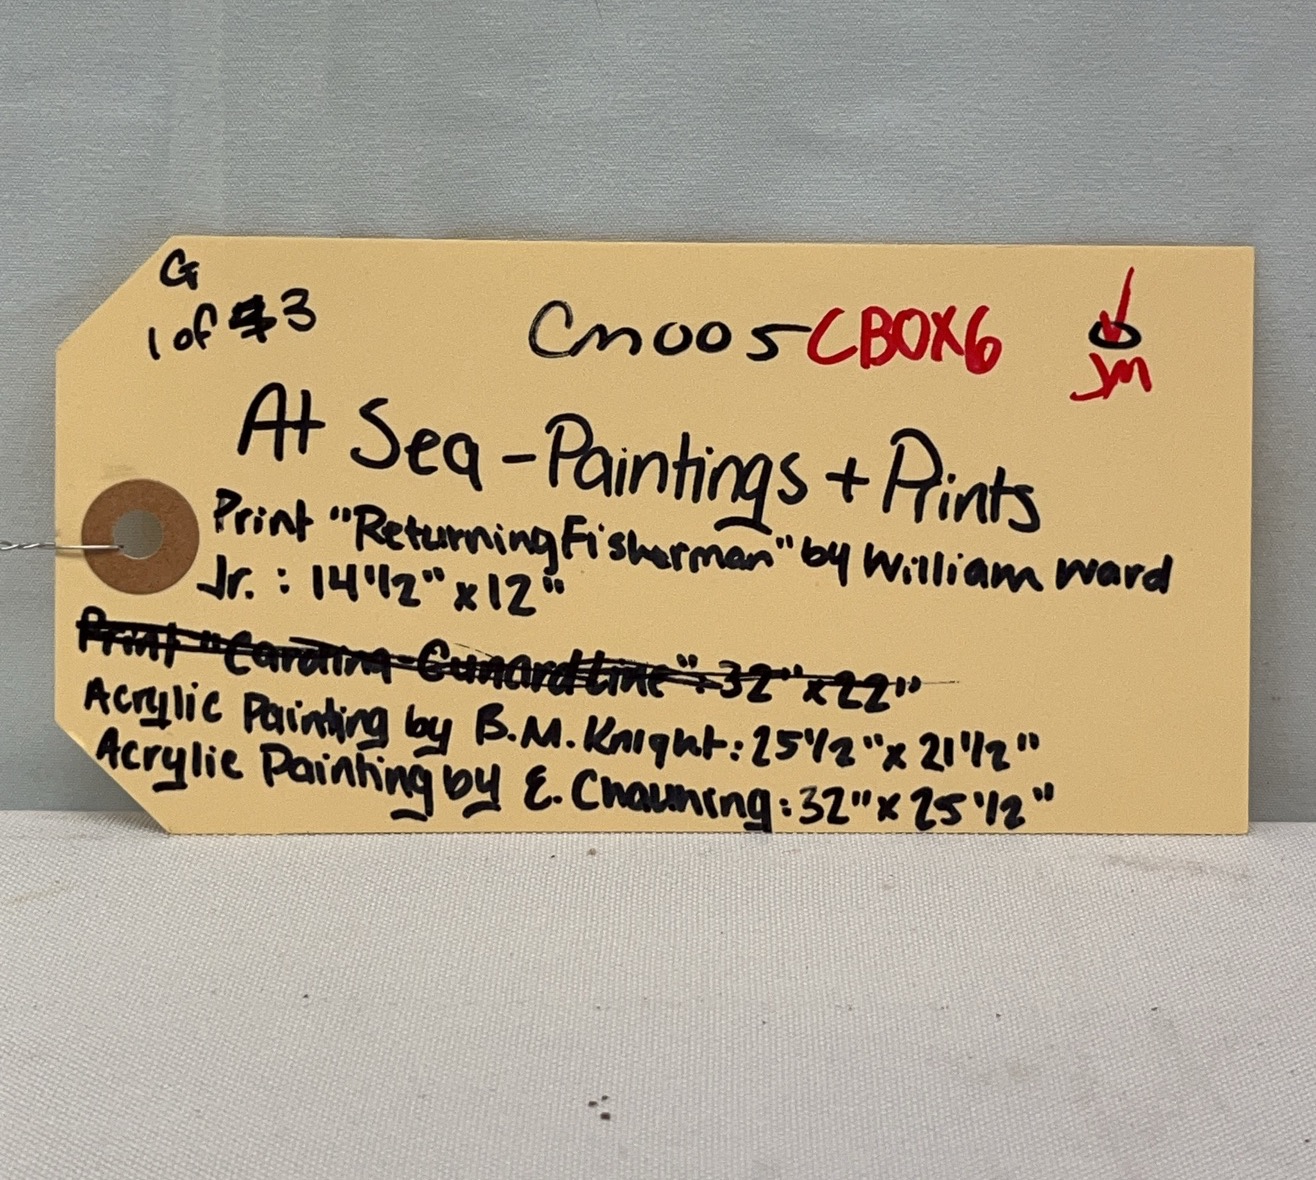 G
1 of 3
Cm005 CBOX6
JM
At Sea - Paintings + Prints
Print "Returning Fisherman" by William Ward
Jr. : 14 1/2" x 12"
Print "Carolina Cunard Line": 32" x 22"
Acrylic Painting by B.M. Knight: 25 1/2" x 21 1/2"
Acrylic Painting by E. Chauning: 32" x 25 1/2"